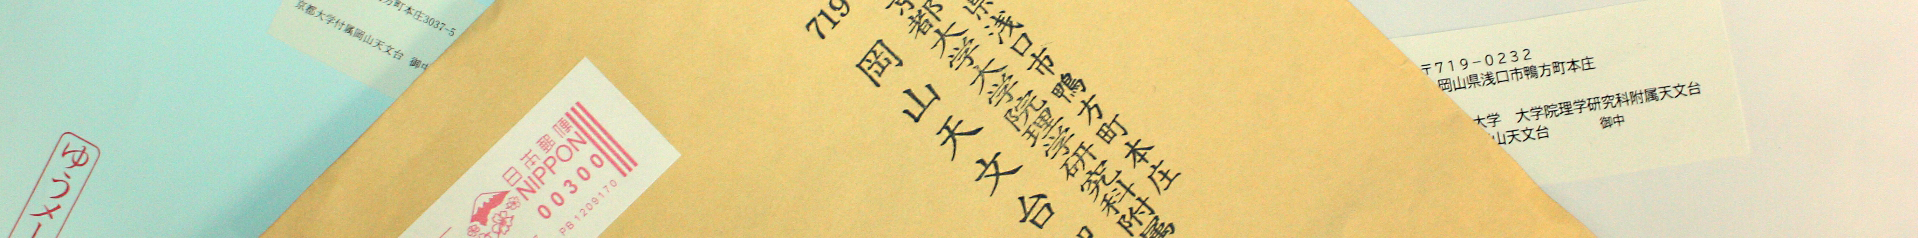 方町本庄3037-5
京都大学付属岡山天文台 御中
ゆうメー
日本郵便
NIPPON
00300
PB1209170
719
県浅口市鴨方町本庄
京都大学大学院理学研究科附属
岡山天文台
〒719-0232
岡山県浅口市鴨方町本庄
大学 大学院理学研究科附属天文台
山天文台 御中